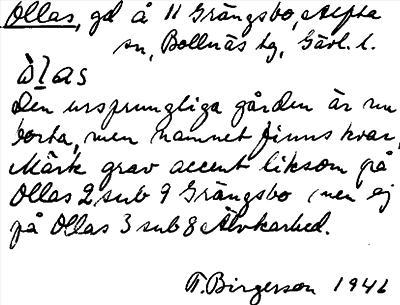 Ollas, gd å 11 Grängsbo, Alfta
sn, Bollnäs tg, Gävl. l.
òlas
Den ursprungliga gården är nu
borta, men namnet finns kvar.
Märk grav accent liksom på
Ollas 2 sub 9 Grängsbo men ej
på Ollas 3 sub 8 Älvkarhed.
T. Birgerson 1946